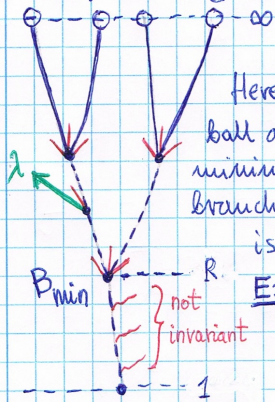 ∞
Here
ball o
minim
branch
λ
is
R
B_min
E:
not
invariant
1